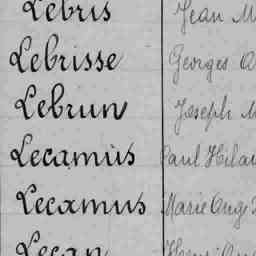 Lebris Jean M
Lebrisse Georges A
Lebrun Joseph M
Lecamus Paul Hilai
Lecamus Marie Ange
Lecan Henri